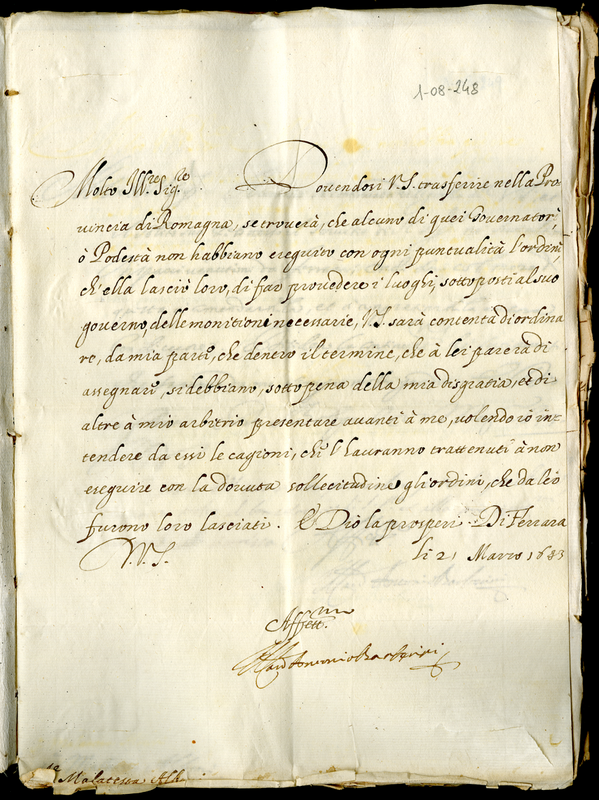 1-08-248
Molto Ill.re Sig.re Dovendosi V.S. trasferire nella Pro-
vincia di Romagna, se troverà, che alcuno di quei Governatori,
ò Podestà non habbiano eseguito con ogni puntualità l'ordini
ch'ella lasciò loro, di far provedere i luoghi, sottoposti al suo
governo, delle monitioni necessarie, V.S. sarà contenta di ordina
re, da mia parte, che dentro il termine, che à lei parerà di
assegnare, si debbiano, sotto pena della mia disgratia, et di
altre à mio arbitrio presentare avanti à me, volendo io int
tendere da essi le cagioni, che l'hauranno trattenuti à non
eseguire con la dovuta sollecitudine gli ordini, che da lei
furono loro lasciati. E Dio la prosperi. Di Ferrara
V.S. li 21 Marzo 1643
Aff.mo
Antonio Barberini
Malatesta Alb